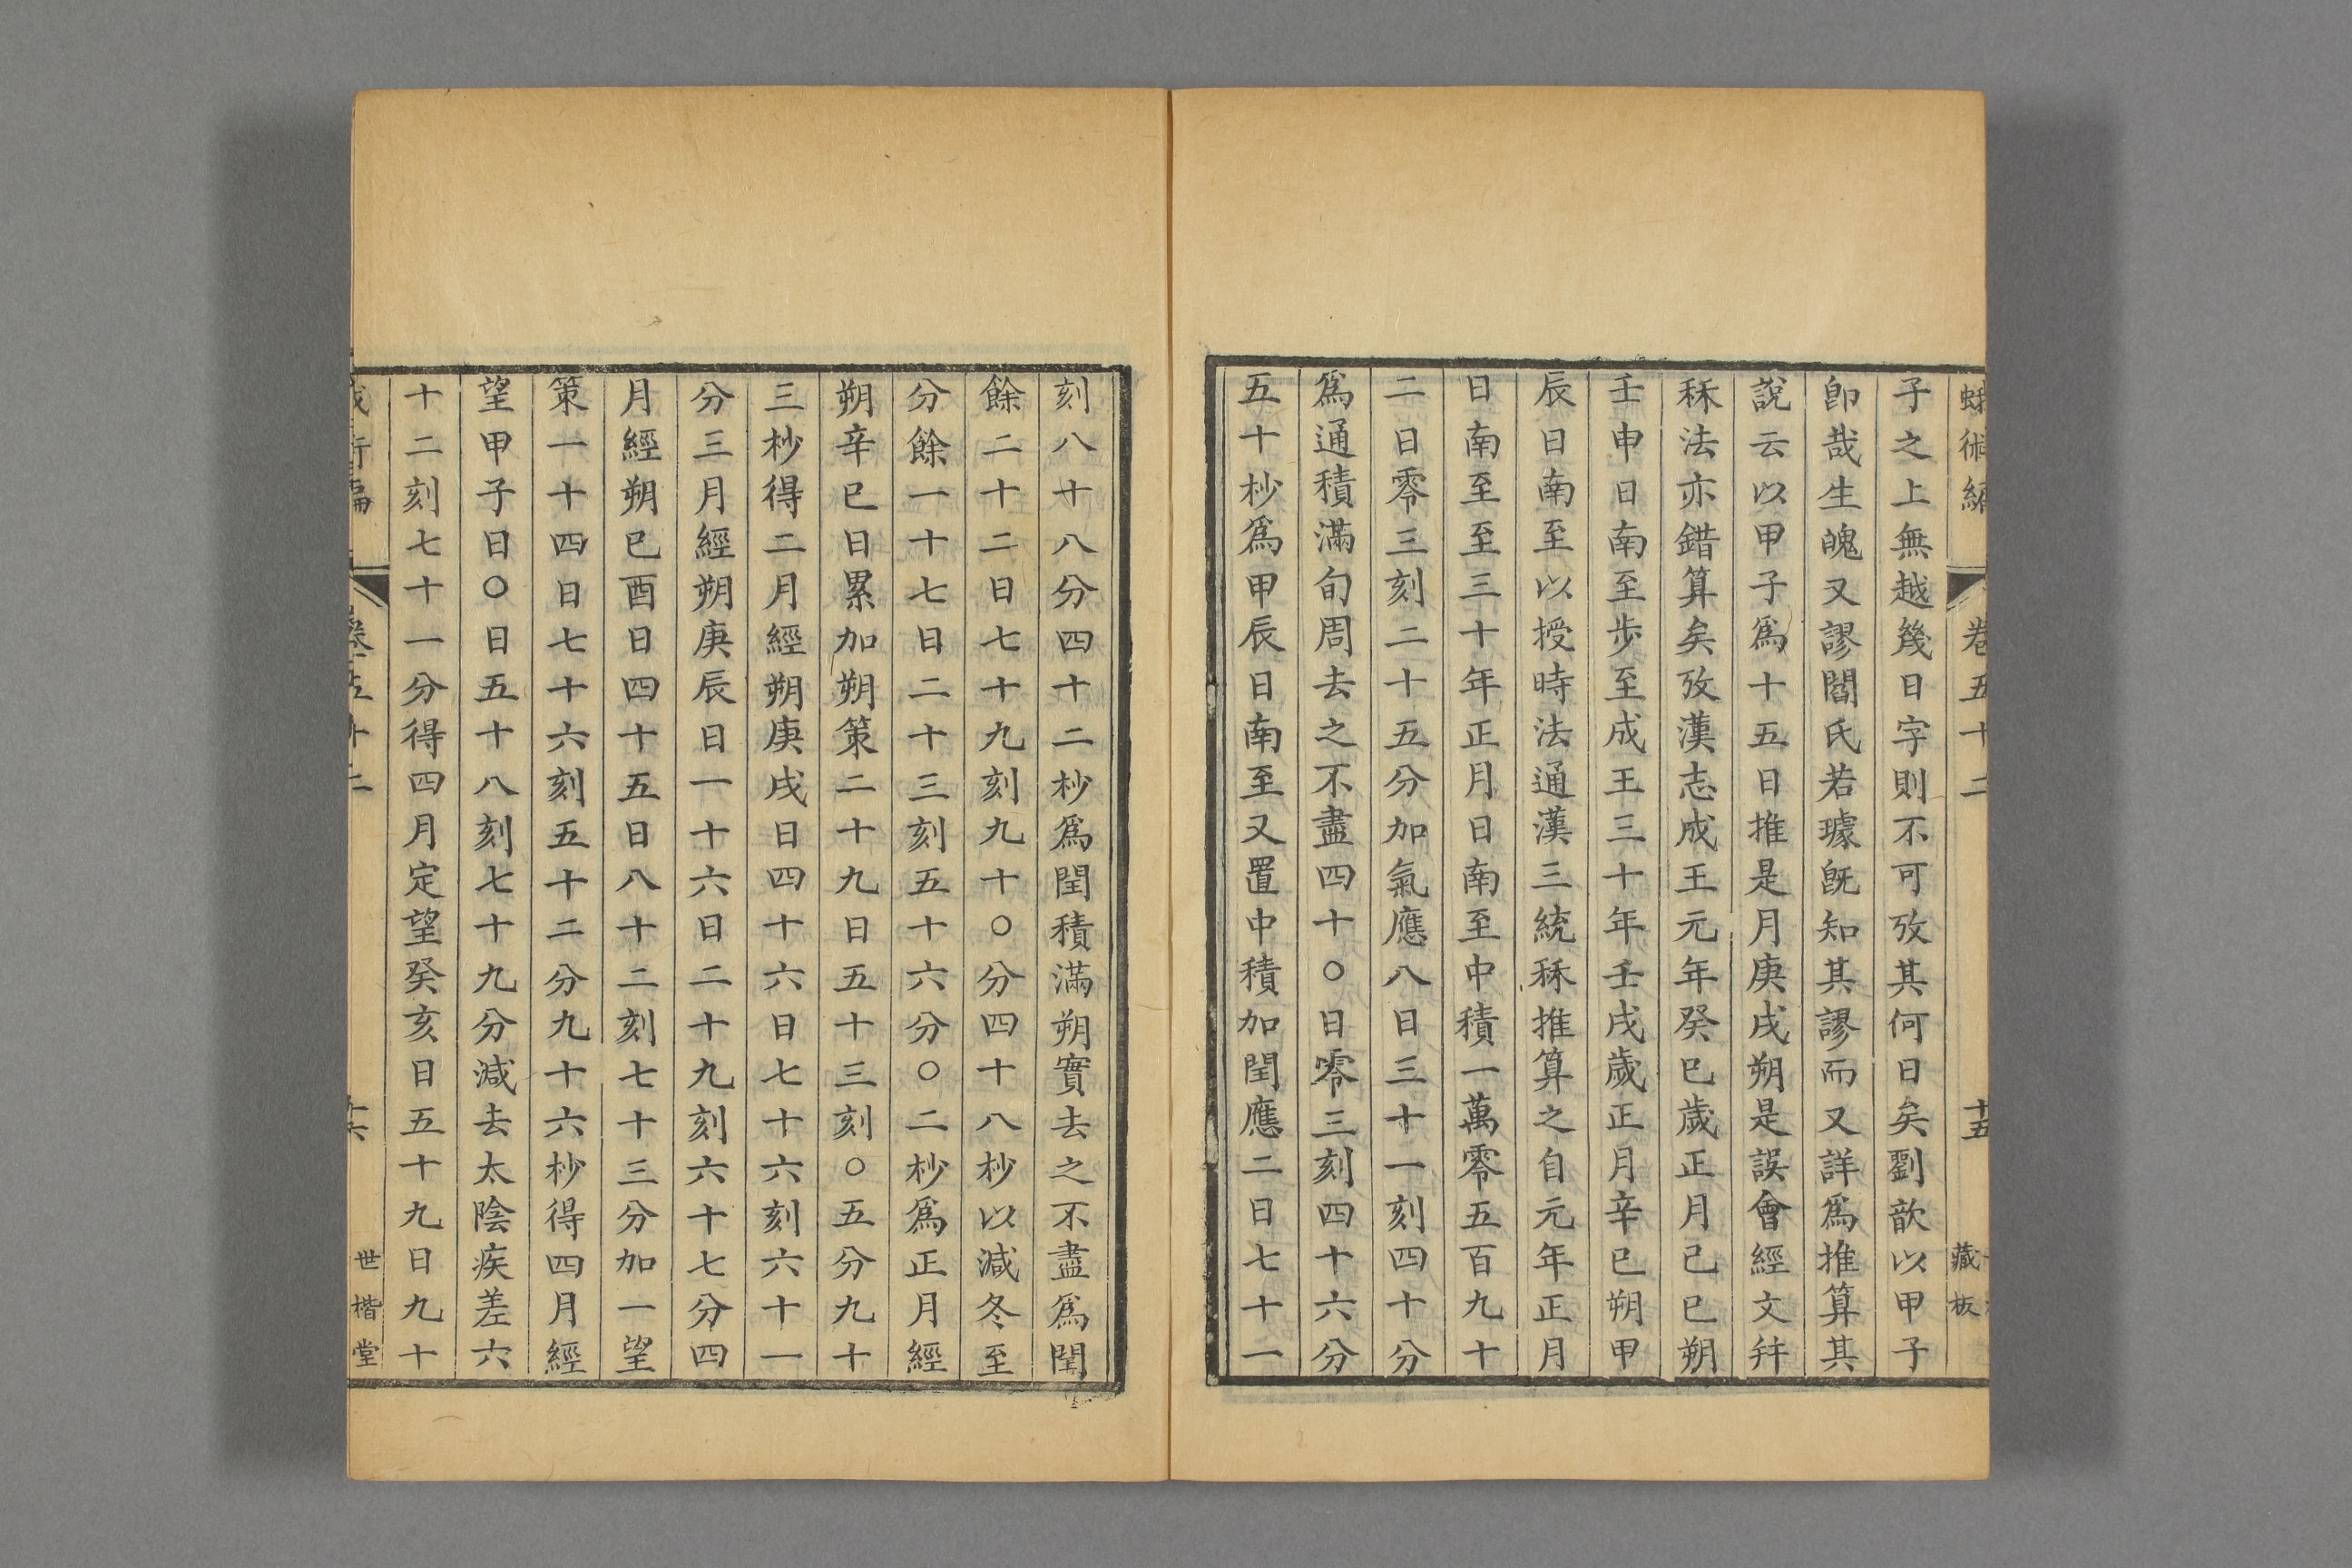 蛾術編 卷五十二 十五 藏板
子之上無越幾日字則不可攷其何日矣劉歆以甲子
卽哉生魄又謬閻氏若璩旣知其謬而又詳爲推算其
說云以甲子爲十五日推是月庚戌朔是誤會經文幷
秝法亦錯算矣攷漢志成王元年癸巳歲正月己巳朔
壬申日南至步至成王三十年壬戌歲正月辛巳朔甲
辰日南至以授時法通漢三統秝推算之自元年正月
日南至至三十年正月日南至中積一萬零五百九十
二日零三刻二十五分加氣應八日三十一刻四十分
爲通積滿旬周去之不盡四十〇日零三刻四十六分
五十杪爲甲辰日南至又置中積加閏應二日七十一
刻八十八分四十二杪爲閏積滿朔實去之不盡爲閏
餘二十二日七十九刻九十〇分四十八杪以減冬至
分餘一十七日二十三刻五十六分〇二杪爲正月經
朔辛巳日累加朔策二十九日五十三刻〇五分九十
三杪得二月經朔庚戌日四十六日七十六刻六十一
分三月經朔庚辰日一十六日二十九刻六十七分四
月經朔己酉日四十五日八十二刻七十三分加一望
策一十四日七十六刻五十二分九十六杪得四月經
望甲子日〇日五十八刻七十九分減去太陰疾差六
十二刻七十一分得四月定望癸亥日五十九日九十
卷五十二 十六 世楷堂